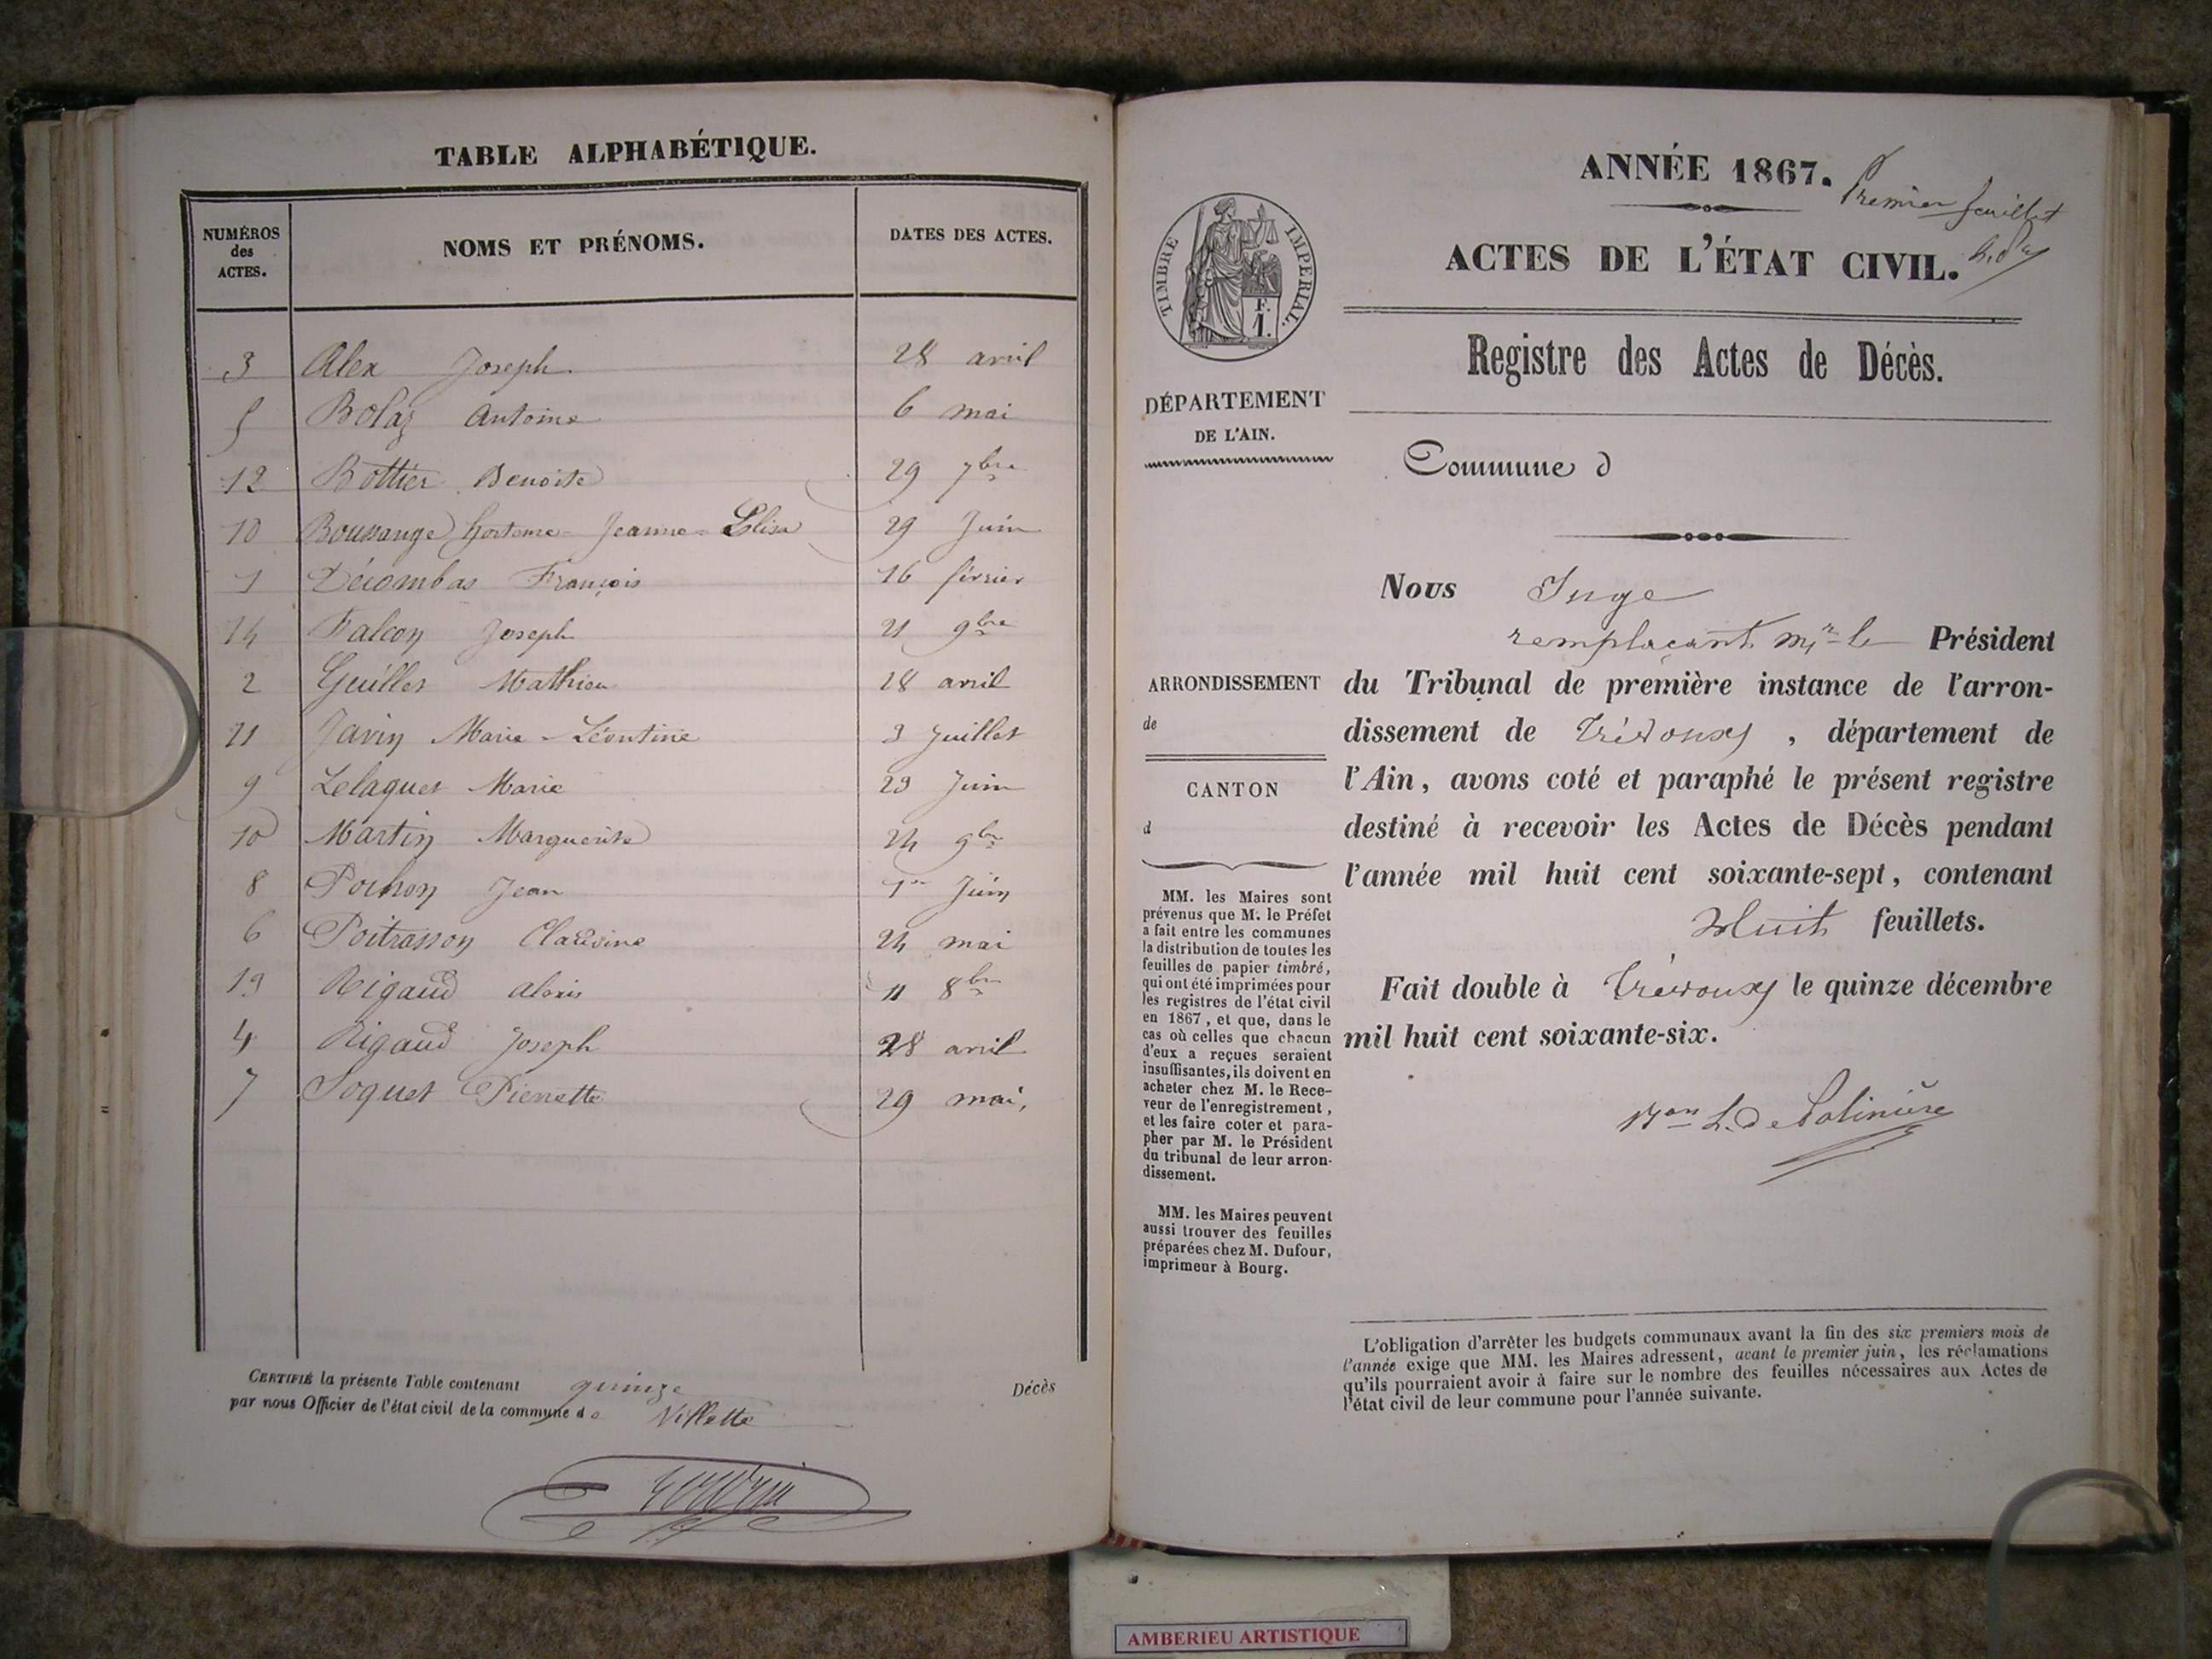 TABLE ALPHABÉTIQUE.
NUMÉROS des ACTES. NOMS ET PRÉNOMS. DATES DES ACTES.
3 Alex Joseph 28 avril
5 Bolaz Antoine 6 mai
12 Bottier Benoite 29 7bre
10 Boussange hortense-Jeanne-Elisa 29 Juin
1 Décombas François 16 février
14 Falcon Joseph 21 9bre
2 Guillet Mathieu 28 avril
11 Javin Marie-Léontine 3 Juillet
9 Lelaquet Marie 23 Juin
Martin Marguerite 24 9bre
8 Pochon Jean 1er Juin
6 Poitrasson Claudine 24 mai
13 Rigaud alexis 11 8bre
4 Rigaud Joseph 28 avril
7 Soquet Pierrette 29 mai,
CERTIFIÉ la présente Table contenant quinze Décès
par nous Officier de l'état civil de la commune de Villette
ANNÉE 1867.
Premier feuillet
ACTES DE L'ÉTAT CIVIL.
TIMBRE IMPÉRIAL.
F.
1.
Registre des Actes de Décès.
DÉPARTEMENT
DE L'AIN.
Commune d
Nous Juge
remplaçant mr le Président
ARRONDISSEMENT
de
CANTON
d
du Tribunal de première instance de l'arron-
dissement de Trévoux, département de
l'Ain, avons coté et paraphé le présent registre
destiné à recevoir les Actes de Décès pendant
l'année mil huit cent soixante-sept, contenant
Huit feuillets.
Fait double à Trévoux le quinze décembre
mil huit cent soixante-six.
Bon L. de Polinière
MM. les Maires sont
prévenus que M. le Préfet
a fait entre les communes
la distribution de toutes les
feuilles de papier timbré,
qui ont été imprimées pour
les registres de l'état civil
en 1867, et que, dans le
cas où celles que chacun
d'eux a reçues seraient
insuffisantes, ils doivent en
acheter chez M. le Rece-
veur de l'enregistrement,
et les faire coter et para-
pher par M. le Président
du tribunal de leur arron-
dissement.
MM. les Maires peuvent
aussi trouver des feuilles
préparées chez M. Dufour,
imprimeur à Bourg.
L'obligation d'arrêter les budgets communaux avant la fin des six premiers mois de
l'année exige que MM. les Maires adressent, avant le premier juin, les réclamations
qu'ils pourraient avoir à faire sur le nombre des feuilles nécessaires aux Actes de
l'état civil de leur commune pour l'année suivante.
AMBERIEU ARTISTIQUE